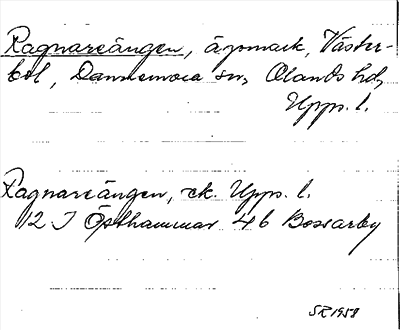 Ragnareängen, ägomark, Väster-
böl, Dannemora sn, Olands hd,
Upps. l.
Ragnareängen, ek. Upps. l.
12 I Östhammar 4b Bossarby
SR 1958